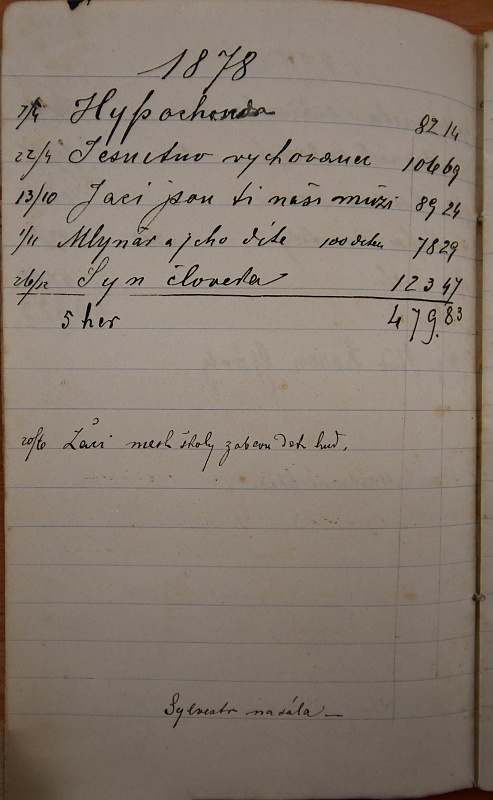 1878
7/4 Hypochondr 82 14
22/4 Jesuitův vychovanec 106 69
13/10 Jací jsou ti naši muži 89 24
1/11 Mlynář a jeho dítě 78 29
26/12 Syn člověka 123 47
5 her 479.83
20/6 Žáci měšt školy zábavu
Sylvestr na sála